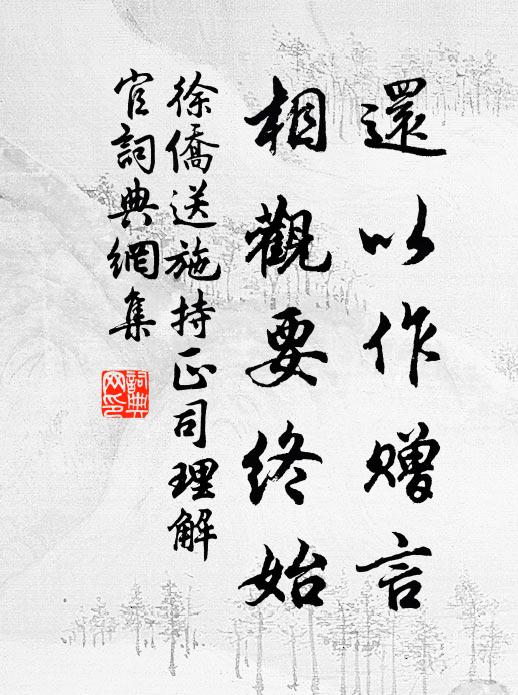 還以作贈言
相觀要終始
徐僑送施持正司理解
官詞典網集
詞典
网印